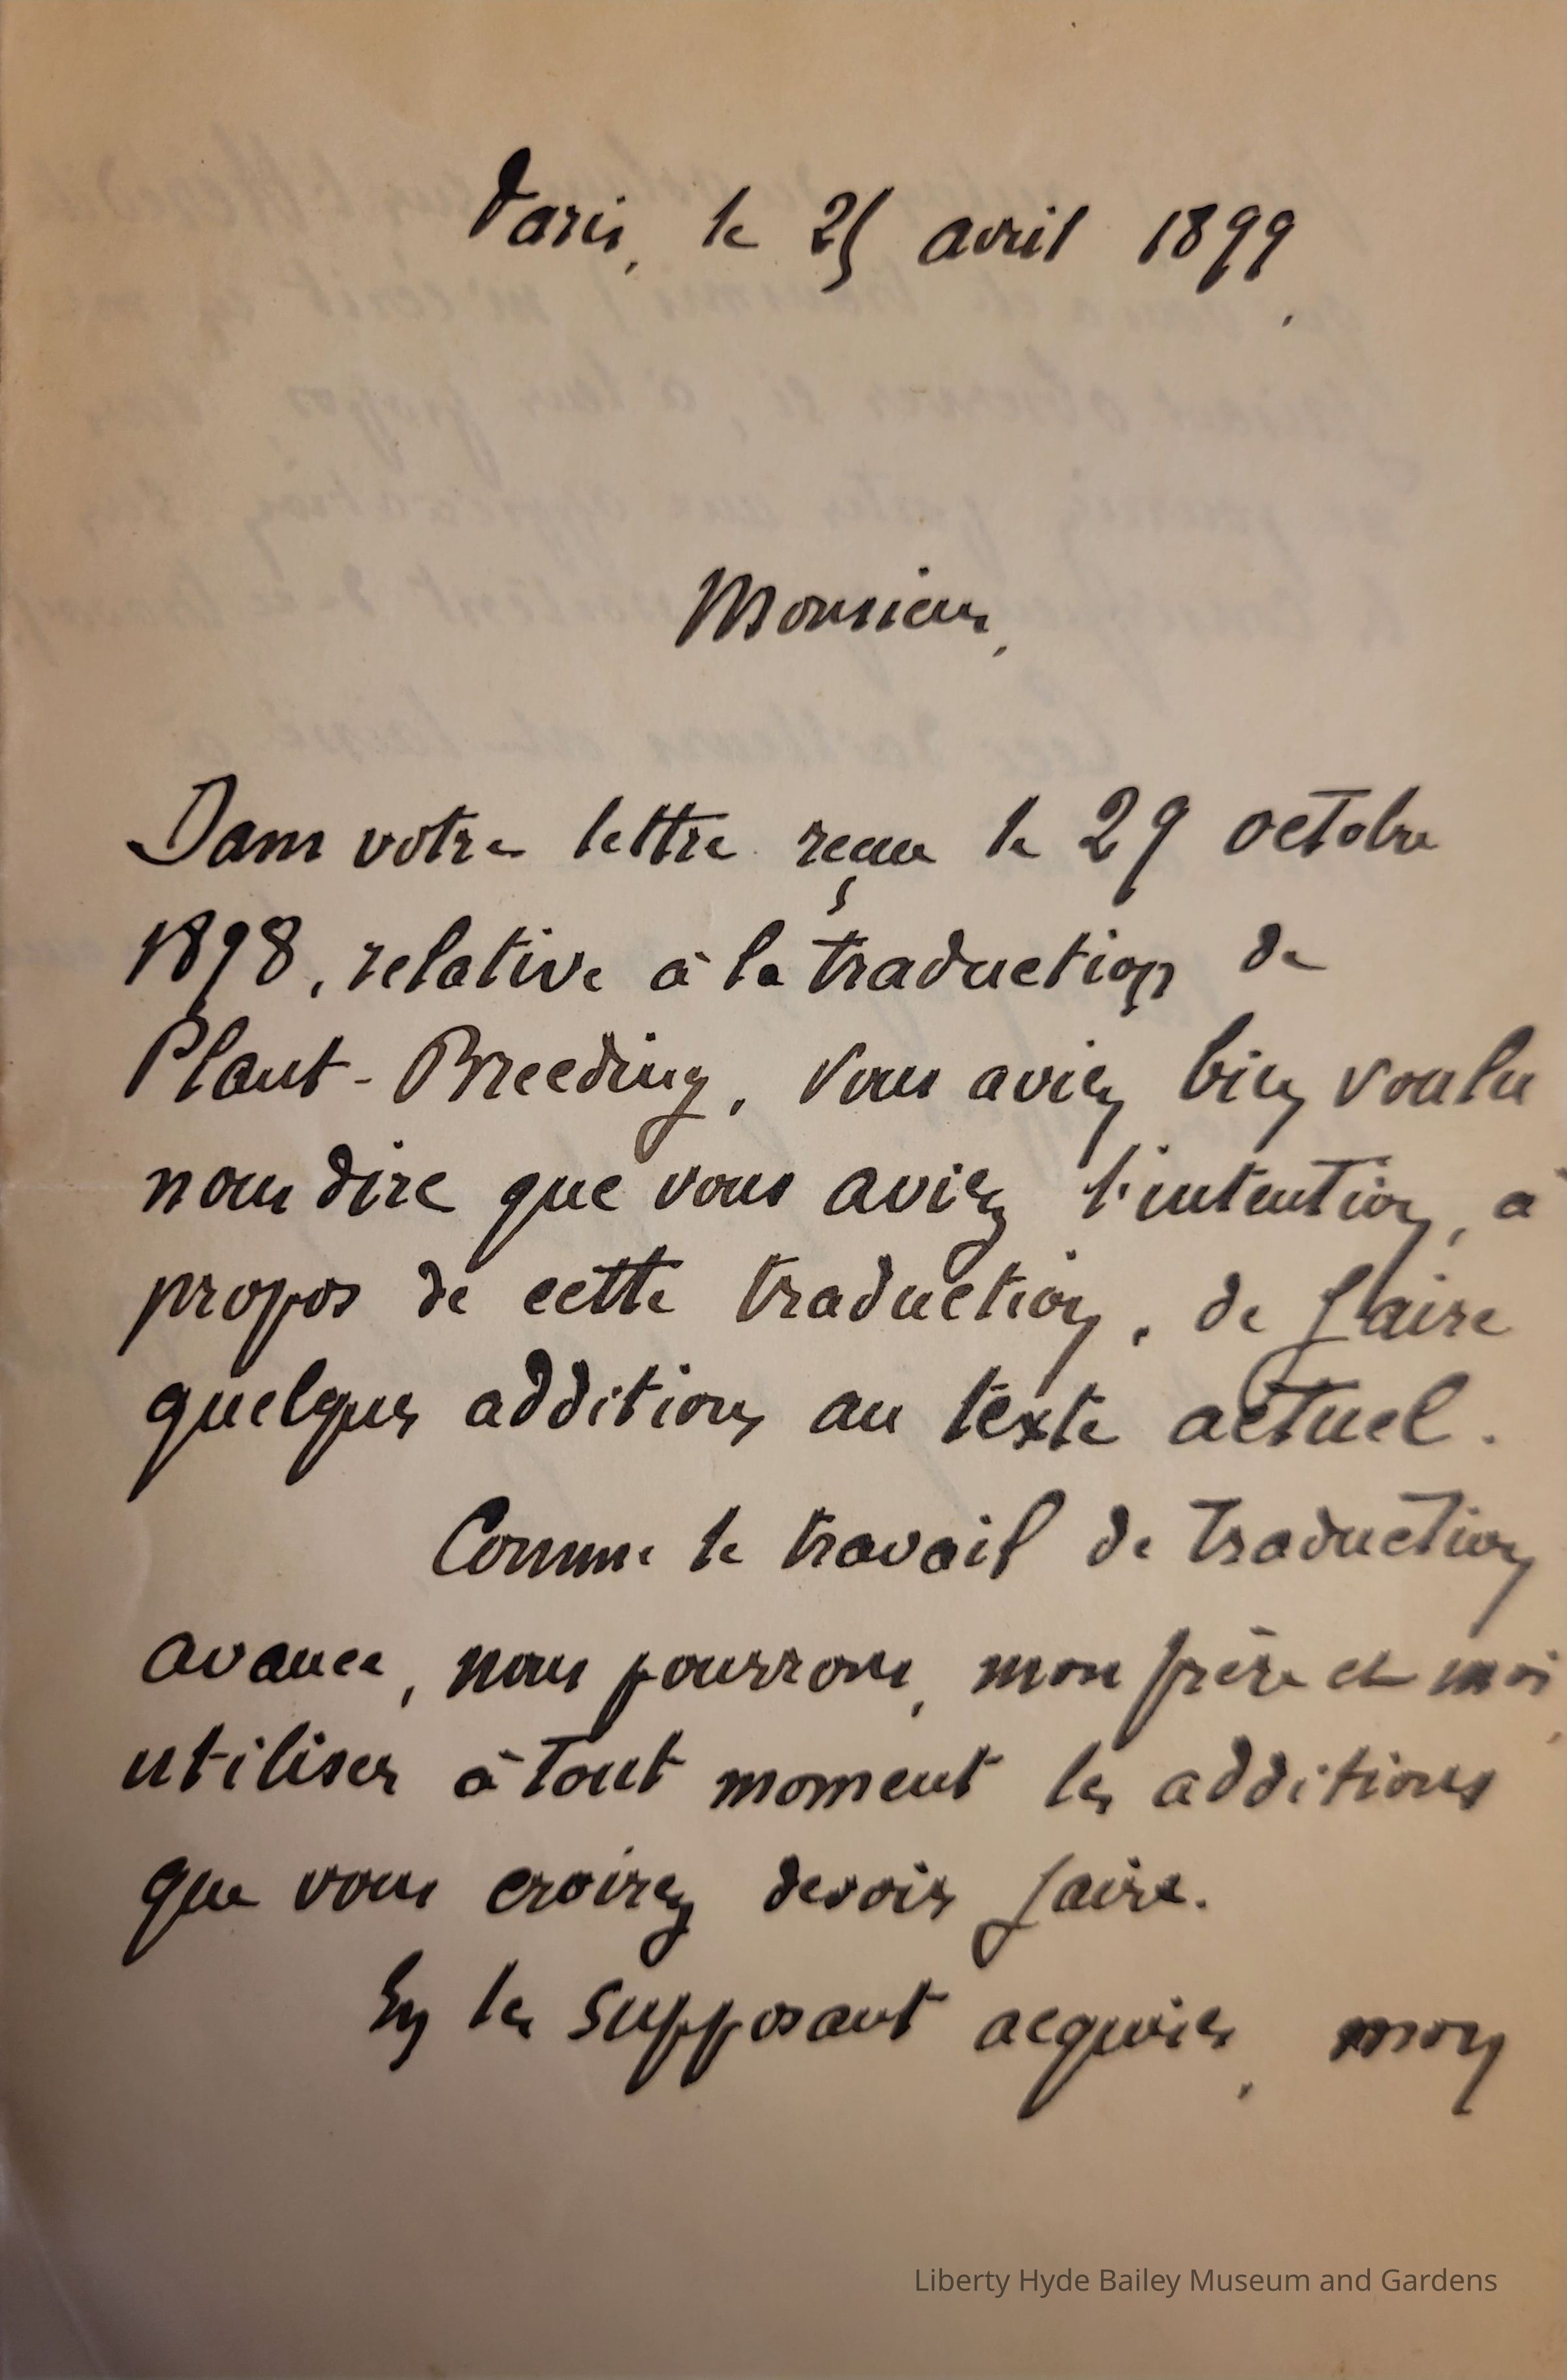 Paris, le 25 avril 1899,
Monsieur,
Dans votre lettre reçue le 29 octobre
1898, relative à la traduction de
Plant-Breeding, vous aviez bien voulu
nous dire que vous aviez l'intention, à
propos de cette traduction, de faire
quelques additions au texte actuel.
Comme le travail de traduction
avance, nous pourrons, mon frère et moi,
utiliser à tout moment les additions
que vous croirez devoir faire.
En les supposant acquises, mon
Liberty Hyde Bailey Museum and Gardens